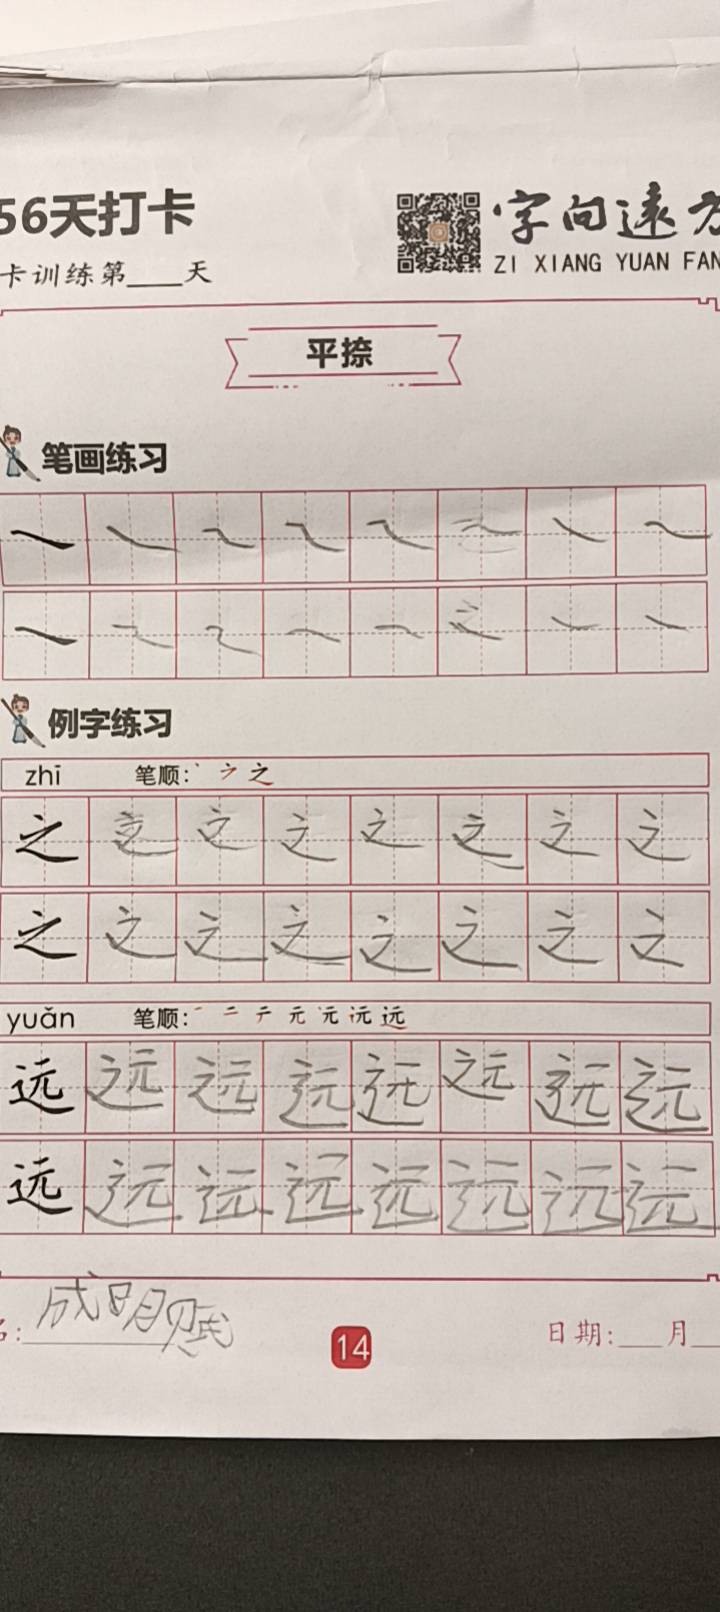 56天打卡
字向远方
ZI XIANG YUAN FAN
卡训练第____天
平捺
笔画练习
例字练习
zhī 笔顺:
之 之 之 之 之 之 之 之
之 之 之 之 之 之 之 之
yuǎn 笔顺: 一 二 テ 元 元 沅 远
远 远 远 远 远 远 远 远
远 远 远 远 远 远 远 远
名: 成明赋
14
日期:___月